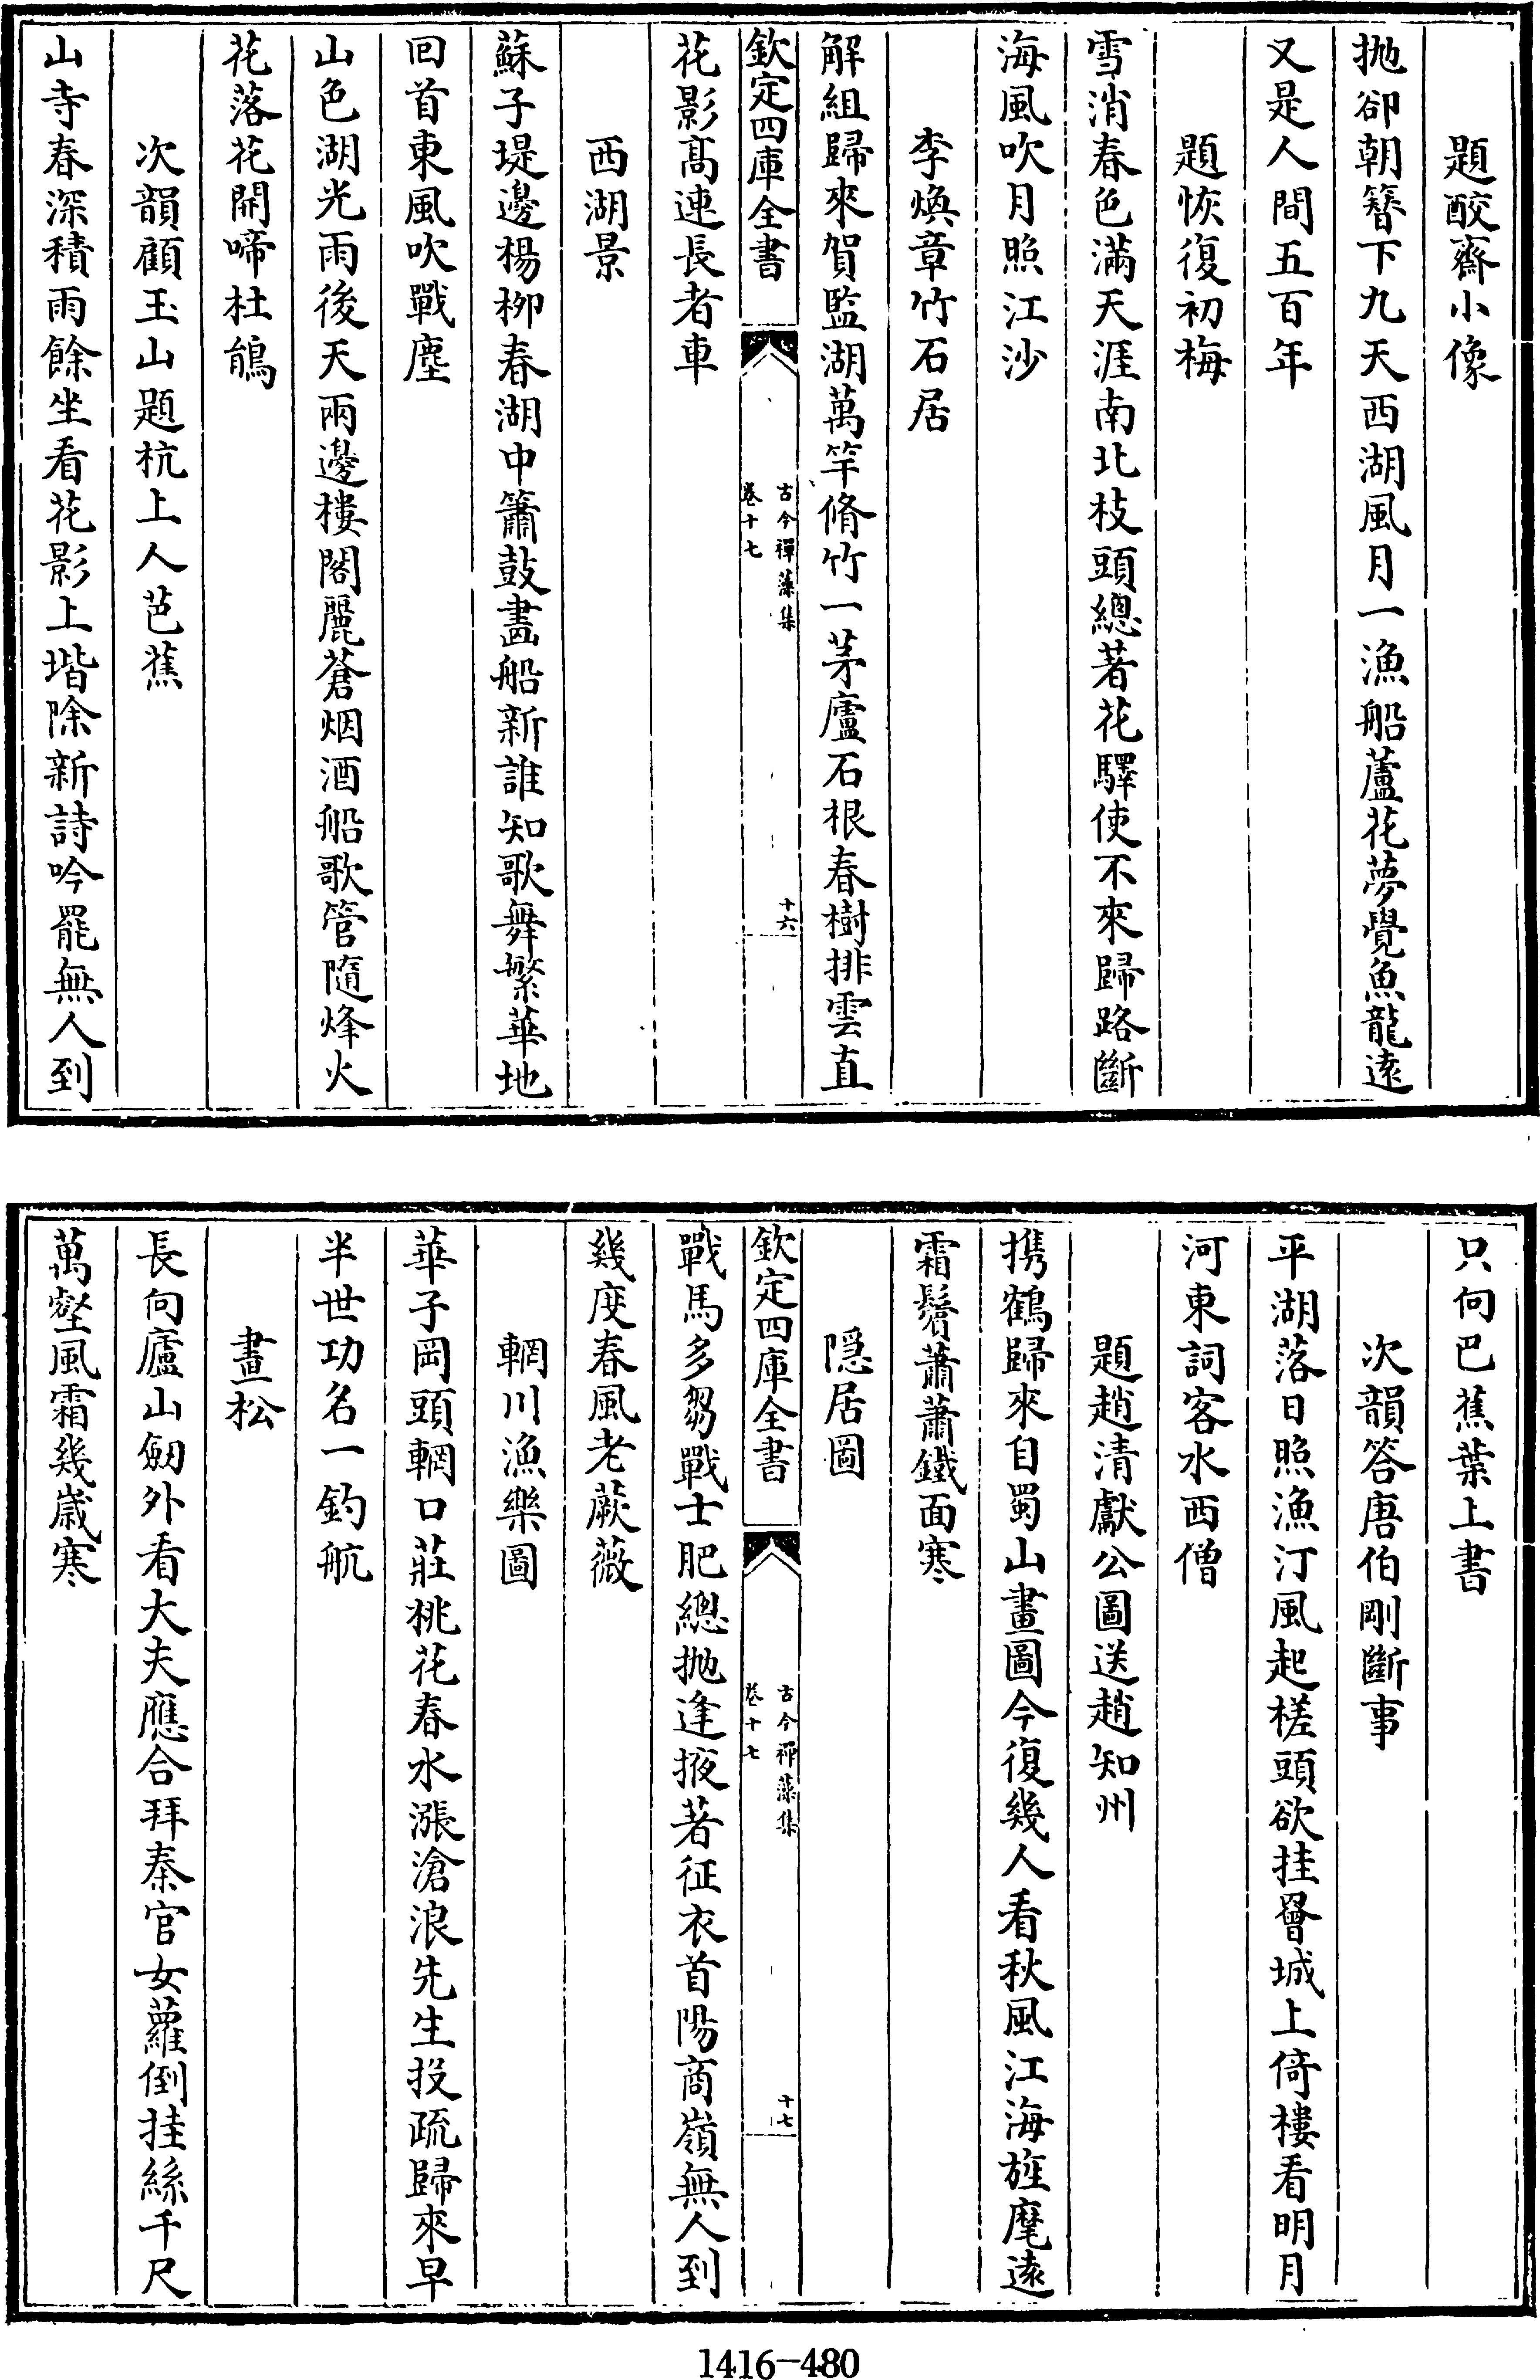 題酸齋小像
抛卻朝簪下九天西湖風月一漁船蘆花夢覺魚龍遠
又是人間五百年
題恢復初梅
雪消春色滿天涯南北枝頭總著花驛使不來歸路斷
海風吹月照江沙
李煥章竹石居
解組歸來賀監湖萬竿脩竹一茅廬石根春樹排雲直
欽定四庫全書
古今禪藻集
卷十七
十六
花影髙連長者車
西湖景
蘇子堤邊楊栁春湖中簫鼓畵船新誰知歌舞繁華地
回首東風吹戰塵
山色湖光雨後天兩邊樓閣麗蒼烟酒船歌管隨烽火
花落花開啼杜鵑
次韻顧玉山題杭上人芭蕉
山寺春深積雨餘坐看花影上堦除新詩吟罷無人到
只向巴蕉葉上書
次韻答唐伯剛斷事
平湖落日照漁汀風起槎頭欲挂罾城上倚樓看明月
河東詞客水西僧
題趙清獻公圖送趙知州
携鶴歸來自蜀山畫圖今復幾人看秋風江海旌麾遠
霜鬢蕭蕭鐵面寒
隠居圖
欽定四庫全書
古今禪藻集
卷十七
十七
戰馬多芻戰士肥總抛逢掖著征衣首陽商嶺無人到
幾度春風老蕨薇
輞川漁樂圖
華子岡頭輞口莊桃花春水漲滄浪先生投疏歸來早
半世功名一釣航
畫松
長向廬山劒外看大夫應合拜秦官女蘿倒挂絲千尺
萬壑風霜幾歲寒
1416-480